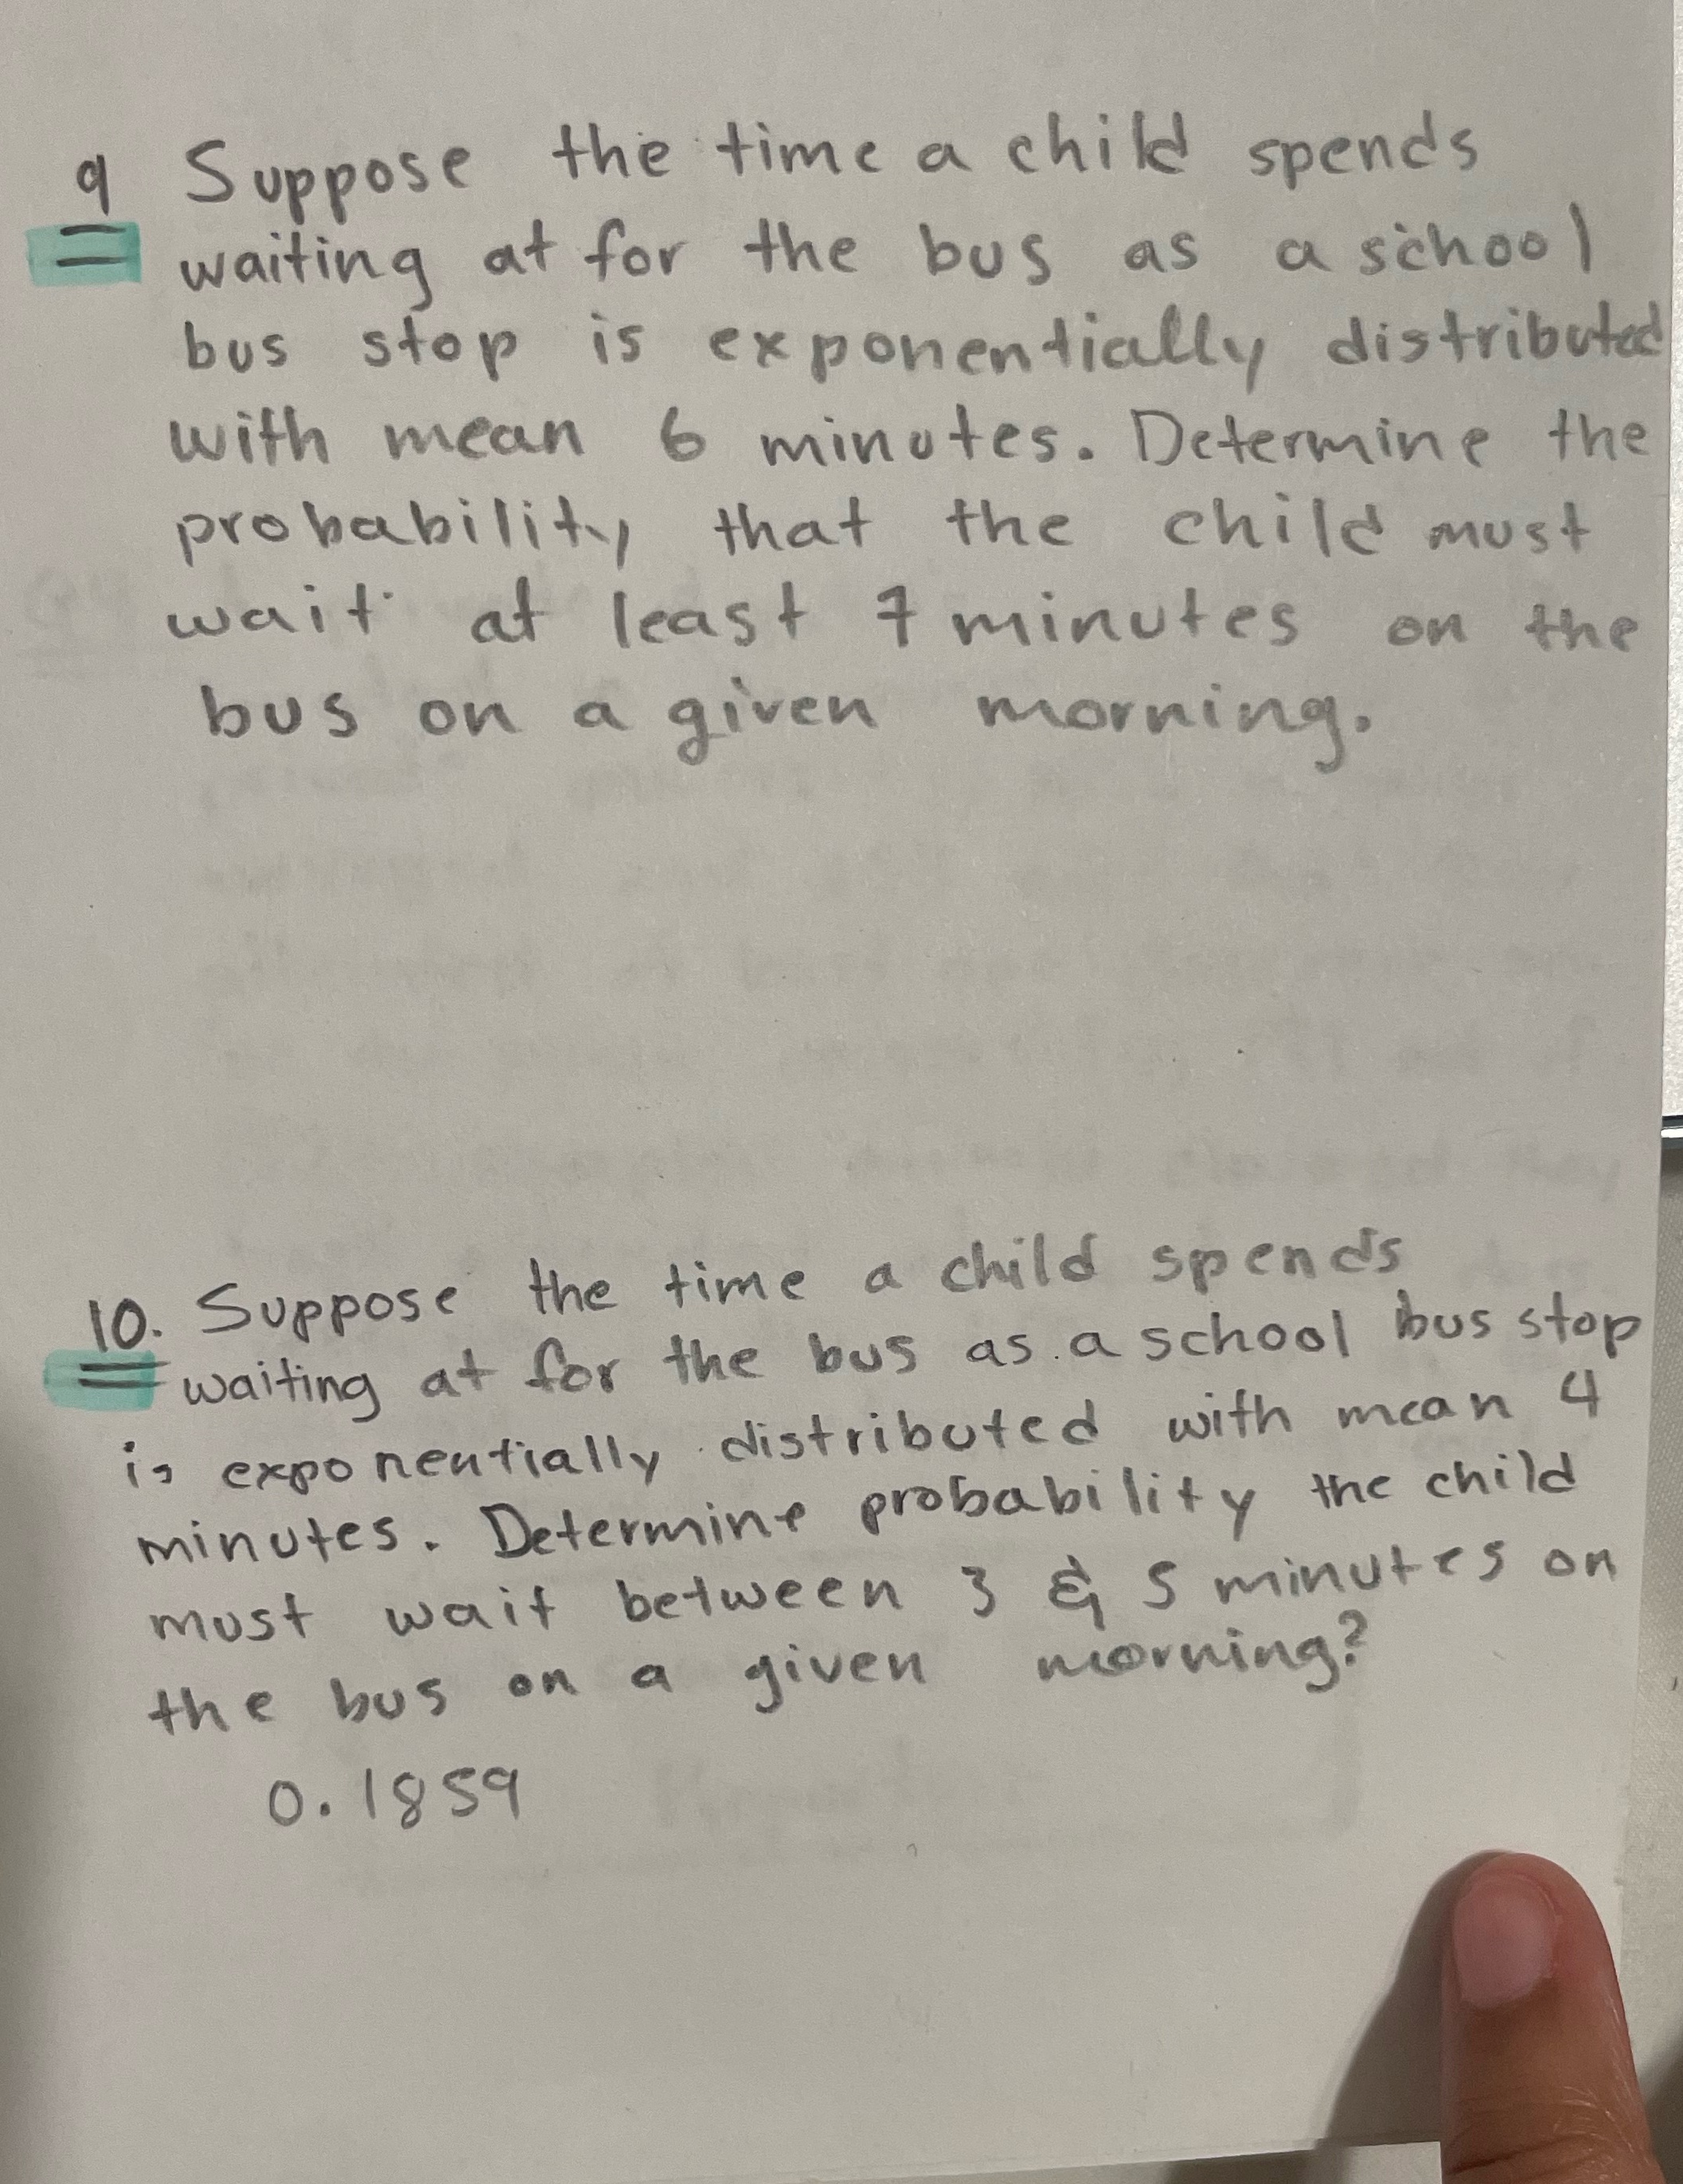 9 Suppose the time a child spends
waiting at for the bus as a school
bus stop is exponentially distributed
with mean 6 minutes. Determine the
probability that the child must
wait at least 7 minutes on the
bus on a given morning.
10. Suppose the time a child spends
waiting at for the bus as a school bus stop
is exponentially distributed with mean 4
minutes. Determine probability the child
must wait between 3 & 5 minutes on
the bus on a given morning?
0.1859